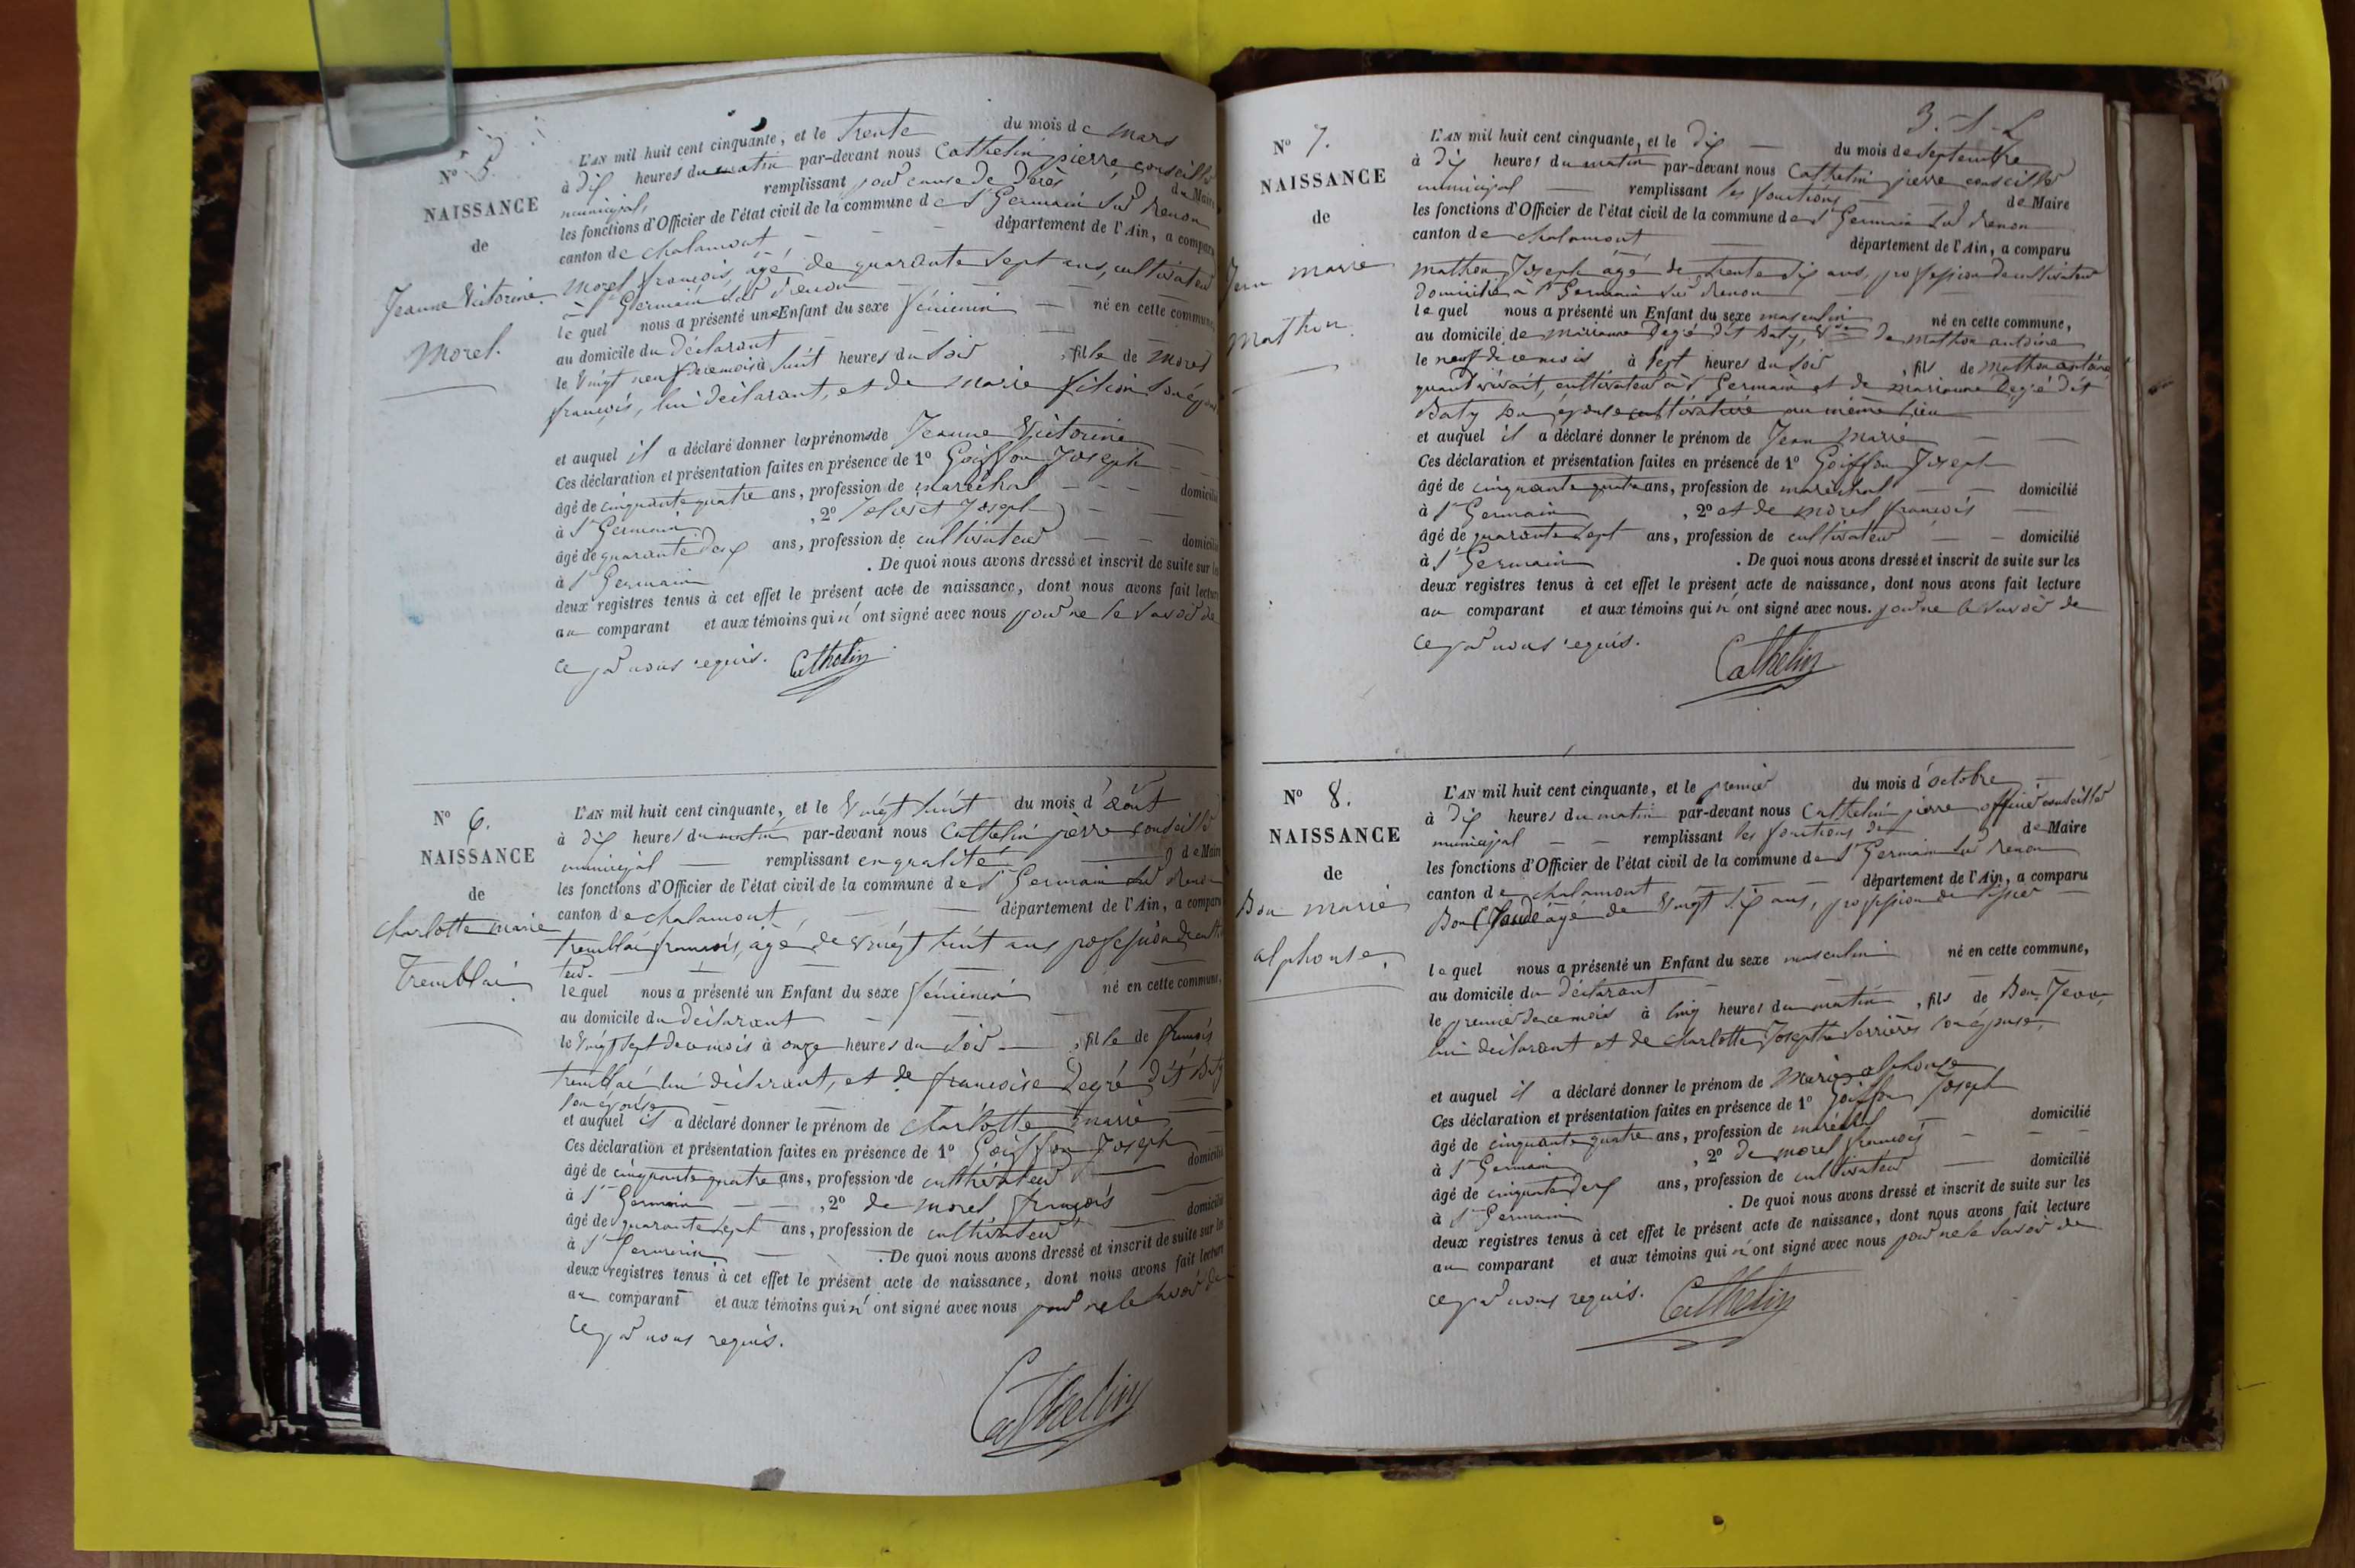 N° 5.
NAISSANCE
de
Jeanne Victorine
Morel.
L'AN mil huit cent cinquante, et le trente du mois de mars
à dix heures du matin par-devant nous Cathelin pierre, conseiller
municipal, remplissant pour cause de décès du Maire
les fonctions d'Officier de l'état civil de la commune de St Germain sur renon
canton de chalamont, département de l'Ain, a comparu
Morel françois, âgé de quarante sept ans, cultivateur
à St Germain sur renon
lequel nous a présenté une Enfant du sexe féminin né en cette commune,
au domicile du déclarant
le vingt neuf de ce mois à huit heures du soir, fille de Morel
françois, lui déclarant, et de marie son épouse
et auquel il a déclaré donner les prénoms de Jeanne Victorine
Ces déclaration et présentation faites en présence de 1° Goiffon Joseph
âgé de cinquante quatre ans, profession de maréchal domicilié
à St Germain, 2° Joseph
âgé de quarante deux ans, profession de cultivateur domicilié
à St Germain. De quoi nous avons dressé et inscrit de suite sur les
deux registres tenus à cet effet le présent acte de naissance, dont nous avons fait lecture
au comparant et aux témoins qui n'ont signé avec nous pour ne le savoir de
ce par nous requis. Cathelin
N° 6.
NAISSANCE
de
charlotte marie
Tremblai
L'AN mil huit cent cinquante, et le vingt huit du mois d'août
à dix heures du matin par-devant nous Cathelin pierre conseiller
municipal remplissant en qualité de Maire
les fonctions d'Officier de l'état civil de la commune de St Germain sur renon
canton de chalamont, département de l'Ain, a comparu
tremblai françois, âgé de vingt huit ans profession de cultiva
teur.
lequel nous a présenté un Enfant du sexe féminin né en cette commune,
au domicile du déclarant
le vingt sept de ce mois à onze heures du soir, fille de françois
tremblai lui déclarant, et de francoise Degré dit Baty
son épouse
et auquel il a déclaré donner le prénom de charlotte marie
Ces déclaration et présentation faites en présence de 1° Goiffon Joseph
âgé de cinquante quatre ans, profession de cultivateur domicilié
à St Germain, 2° de morel françois
âgé de quarante sept ans, profession de cultivateur domicilié
à St Germain. De quoi nous avons dressé et inscrit de suite sur les
deux registres tenus à cet effet le présent acte de naissance, dont nous avons fait lecture
au comparant et aux témoins qui n'ont signé avec nous pour ne le savoir de
ce par nous requis.
Cathelin
N° 7.
NAISSANCE
de
Jean marie
mathon.
L'AN mil huit cent cinquante, et le dix du mois de septembre
à dix heures du matin par-devant nous Cathelin pierre conseiller
municipal remplissant les fonctions de Maire
les fonctions d'Officier de l'état civil de la commune de St Germain sur renon
canton de chalamont département de l'Ain, a comparu
mathon Joseph âgé de trente dix ans, profession de cultivateur
domicilié à St Germain sur renon
lequel nous a présenté un Enfant du sexe masculin né en cette commune,
au domicile de marianne Degré dit Baty, Vve de mathon antoine
le neuf de ce mois à sept heures du soir, fils de mathon antoine
quand vivait, cultivateur à St Germain et de marianne Degré dit
Baty son épouse cultivatrice au même lieu
et auquel il a déclaré donner le prénom de Jean marie
Ces déclaration et présentation faites en présence de 1° Goiffon Joseph
âgé de cinquante quatre ans, profession de maréchal domicilié
à St Germain, 2° et de morel françois
âgé de quarante sept ans, profession de cultivateur domicilié
à St Germain. De quoi nous avons dressé et inscrit de suite sur les
deux registres tenus à cet effet le présent acte de naissance, dont nous avons fait lecture
au comparant et aux témoins qui n'ont signé avec nous. pour ne le savoir de
ce par nous requis. Cathelin
N° 8.
NAISSANCE
de
Bon marie
alphonse.
L'AN mil huit cent cinquante, et le premier du mois d'octobre
à dix heures du matin par-devant nous Cathelin pierre officier conseiller
municipal remplissant les fonctions de Maire
les fonctions d'Officier de l'état civil de la commune de St Germain sur renon
canton de chalamont département de l'Ain, a comparu
Bon Claude âgé de vingt six ans, profession de
lequel nous a présenté un Enfant du sexe masculin né en cette commune,
au domicile du déclarant
le premier de ce mois à cinq heures du matin, fils de Bon Jean,
lui déclarant et de charlotte Josephe Serrières son épouse,
et auquel il a déclaré donner le prénom de Marie alphonse
Ces déclaration et présentation faites en présence de 1° Goiffon Joseph
âgé de cinquante quatre ans, profession de maréchal domicilié
à St Germain, 2° de morel françois
âgé de cinquante deux ans, profession de cultivateur domicilié
à St Germain. De quoi nous avons dressé et inscrit de suite sur les
deux registres tenus à cet effet le présent acte de naissance, dont nous avons fait lecture
au comparant et aux témoins qui n'ont signé avec nous pour ne le savoir de
ce par nous requis. Cathelin